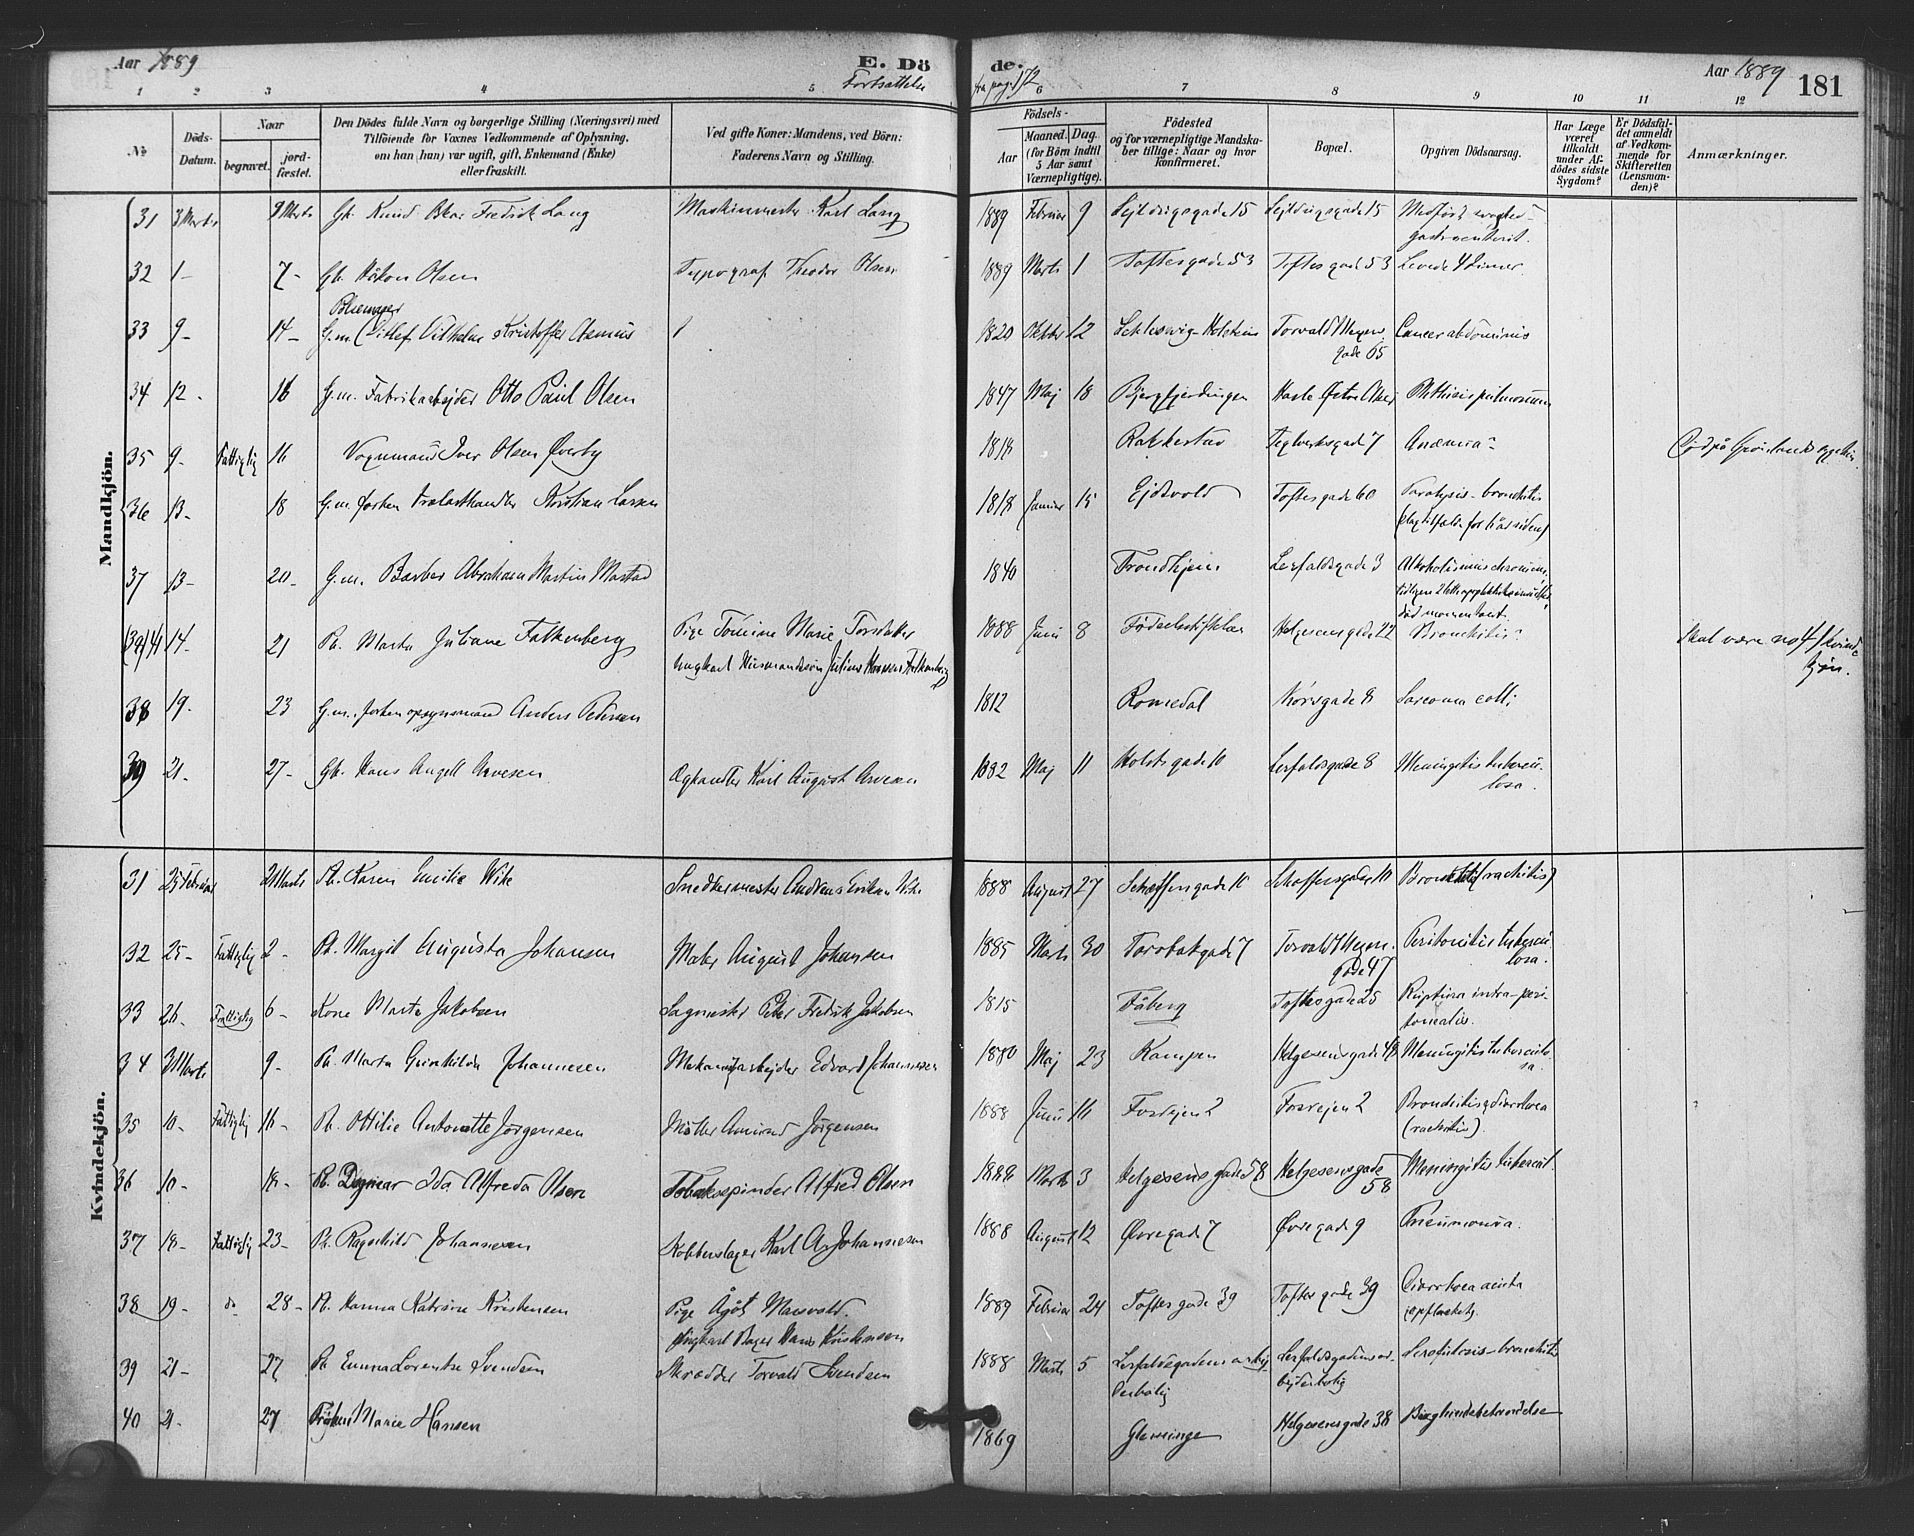 Aar 1889
E. Dö de.
Fortsættelse fra pag. 172
Aar 1889 181
1 2 3 4 5 6 7 8 9 10 11 12
No
Döds-Datum.
Naar
begravet.
jord-fæstet.
Den Dödes fulde Navn og borgerlige Stilling (Næringsvei) med
Tilföiende for Voxnes Vedkommende af Oplysning,
om han (hun) var ugift, gift, Enkemand (Enke)
eller fraskilt.
Ved gifte Koner: Mandens, ved Börn:
Faderens Navn og Stilling.
Födsels-
Aar
Maaned. Dag.
(for Börn indtil
5 Aar samt
Værnepligtige).
Födested
og for værnepligtige Mandska-
ber tillige: Naar og hvor
konfirmeret.
Bopæl.
Opgiven Dödsaarsag.
Har Læge
været
tilkaldt
under Af-
dödes sidste
Sygdom?
Er Dödsfal-
det anmeldt
af Vedkom-
mende for
Skifteretten
(Lensman-
den)?
Anmærkninger.
Mandkjön.
31 3 Marts 9 Marts Gb. Knud Oskar Fredrik Lang Maskinmester Karl Lang 1889 Februar 9 Sejldugsgade 15 Sejldugsgade 15 Medfödt svaghed-
gastroenterit.
32 1- 7- Gb. Håkon Olsen Typograf Theodor Olsen 1889 Marts 1 Toftesgade 53 Toftesgade 53 Levede 4 timer.
33 9- 14- G.m. Ditlef Vilhelm Kristoffer Asmus 1820 Oktber 12 Schleswig-Holstein Torvald Meyers
gade 65 Cancer abdominis
34 12- 16 G.m. Fabrikarbejder Otto Paul Olsen 1847 Maj 18 Hasle Østre Aker Phthisis pulmonum
35 9- Fattiglig 16 Vognmand Iver Olsen Øverby 1818 Rakkestad Teglverksgade 7 Anæmia
36 13- 18 G.m. Kristian Larsen 1818 Januar 15 Ejdsvold Toftesgade 60 Paralysis- bronchitis
37 13- 20- G.m. Barber Abraham Martin Mostad 1840 Trondhjem Lerfaldsgade 3 Alkoholismus chronicus,
14- 21 Pb. Marta Juliane Falkenberg Pige Tomine Marie Torsdatter
Ungkarl Husmandssön Julius Hansen Falkenberg 1888 Juni 8 Födselsstiftelsen Helgesensgade 22 Bronchitis Skal være no 41 kvinde-
kjön.
38 19- 23 G.m. Anders Pedersen 1812 Romedal Korsgade 8 Sarcoma colli
39 21- 27- Gb. Hans Angell Arvesen Æghandler Karl August Arvesen 1882 Maj 11 Holstsgade 10 Lerfaldsgade 8 Meningitis tubercu-
losa.
Kvindekjön.
31 25 Februar 2 Marts Pb. Karen Emilie Wike Snedkermester Andreas Eriksen Wike 1888 August 27 Schæffersgade 10 Schæffersgade 10 Bronchitis (rachitis)
32 25- Fattiglig 2- Pb. Margit Augusta Johansen Maler August Johansen 1885 Marts 30 Torvald Meyers
gade 47 Peritonitis tubercu-
losa.
33 26- Fattiglig 6- Kone Marte Jakobsen Sagmester Peter Fredrik Jakobsen 1815 Fåberg Toftesgade 25 Ruptura intra-peri-
tonealis.
34 3 Marts 9- Pb. Marta Gunhilde Johannesen Mekanisk arbejder Edvard Johannesen 1880 Maj 23 Kampen Helgesensgade 48 Meningitis tuberculo-
sa.
35 10- Fattiglig 16- Pb. Ottilie Antonette Jörgensen Möller Amund Jörgensen 1888 Juni 16 Fosvejen 2 Fosvejen 2 Bronchitis & diarrhoea
(rachitis).
36 10- Pb. Dagmar Ida Alfreda Olsen Tobakspinder Alfred Olsen Marts 3 Helgesensgade 58 Helgesensgade
58 Meningitis tubercul.
37 18- Fattiglig 23- Pb. Ragnhild Johannesen Kobberslager Karl A. Johannesen 1888 August 12 Øvregade 7 Øvregade 9 Pneumonia.
38 19- do 28- Pb. Hanna Katrine Kristensen Pige Ågöt
Ungkarl Bager Hans Kristensen 1889 Februar 24 Toftesgade 39 Toftesgade 39 Diarrhoea acuta
39 21- 27 Pb. Emma Lorentse Svendsen Skrædder Torvald Svendsen 1888 Marts 5 Lerfaldsgadens arbej-
derbolig Lerfaldsgadens ar-
bejderbolig Scrofulosis- bronchitis
40 21- 27 Fröken Marie Hansen 1869 Glemminge Helgesensgade 38 Bughindebetændelse